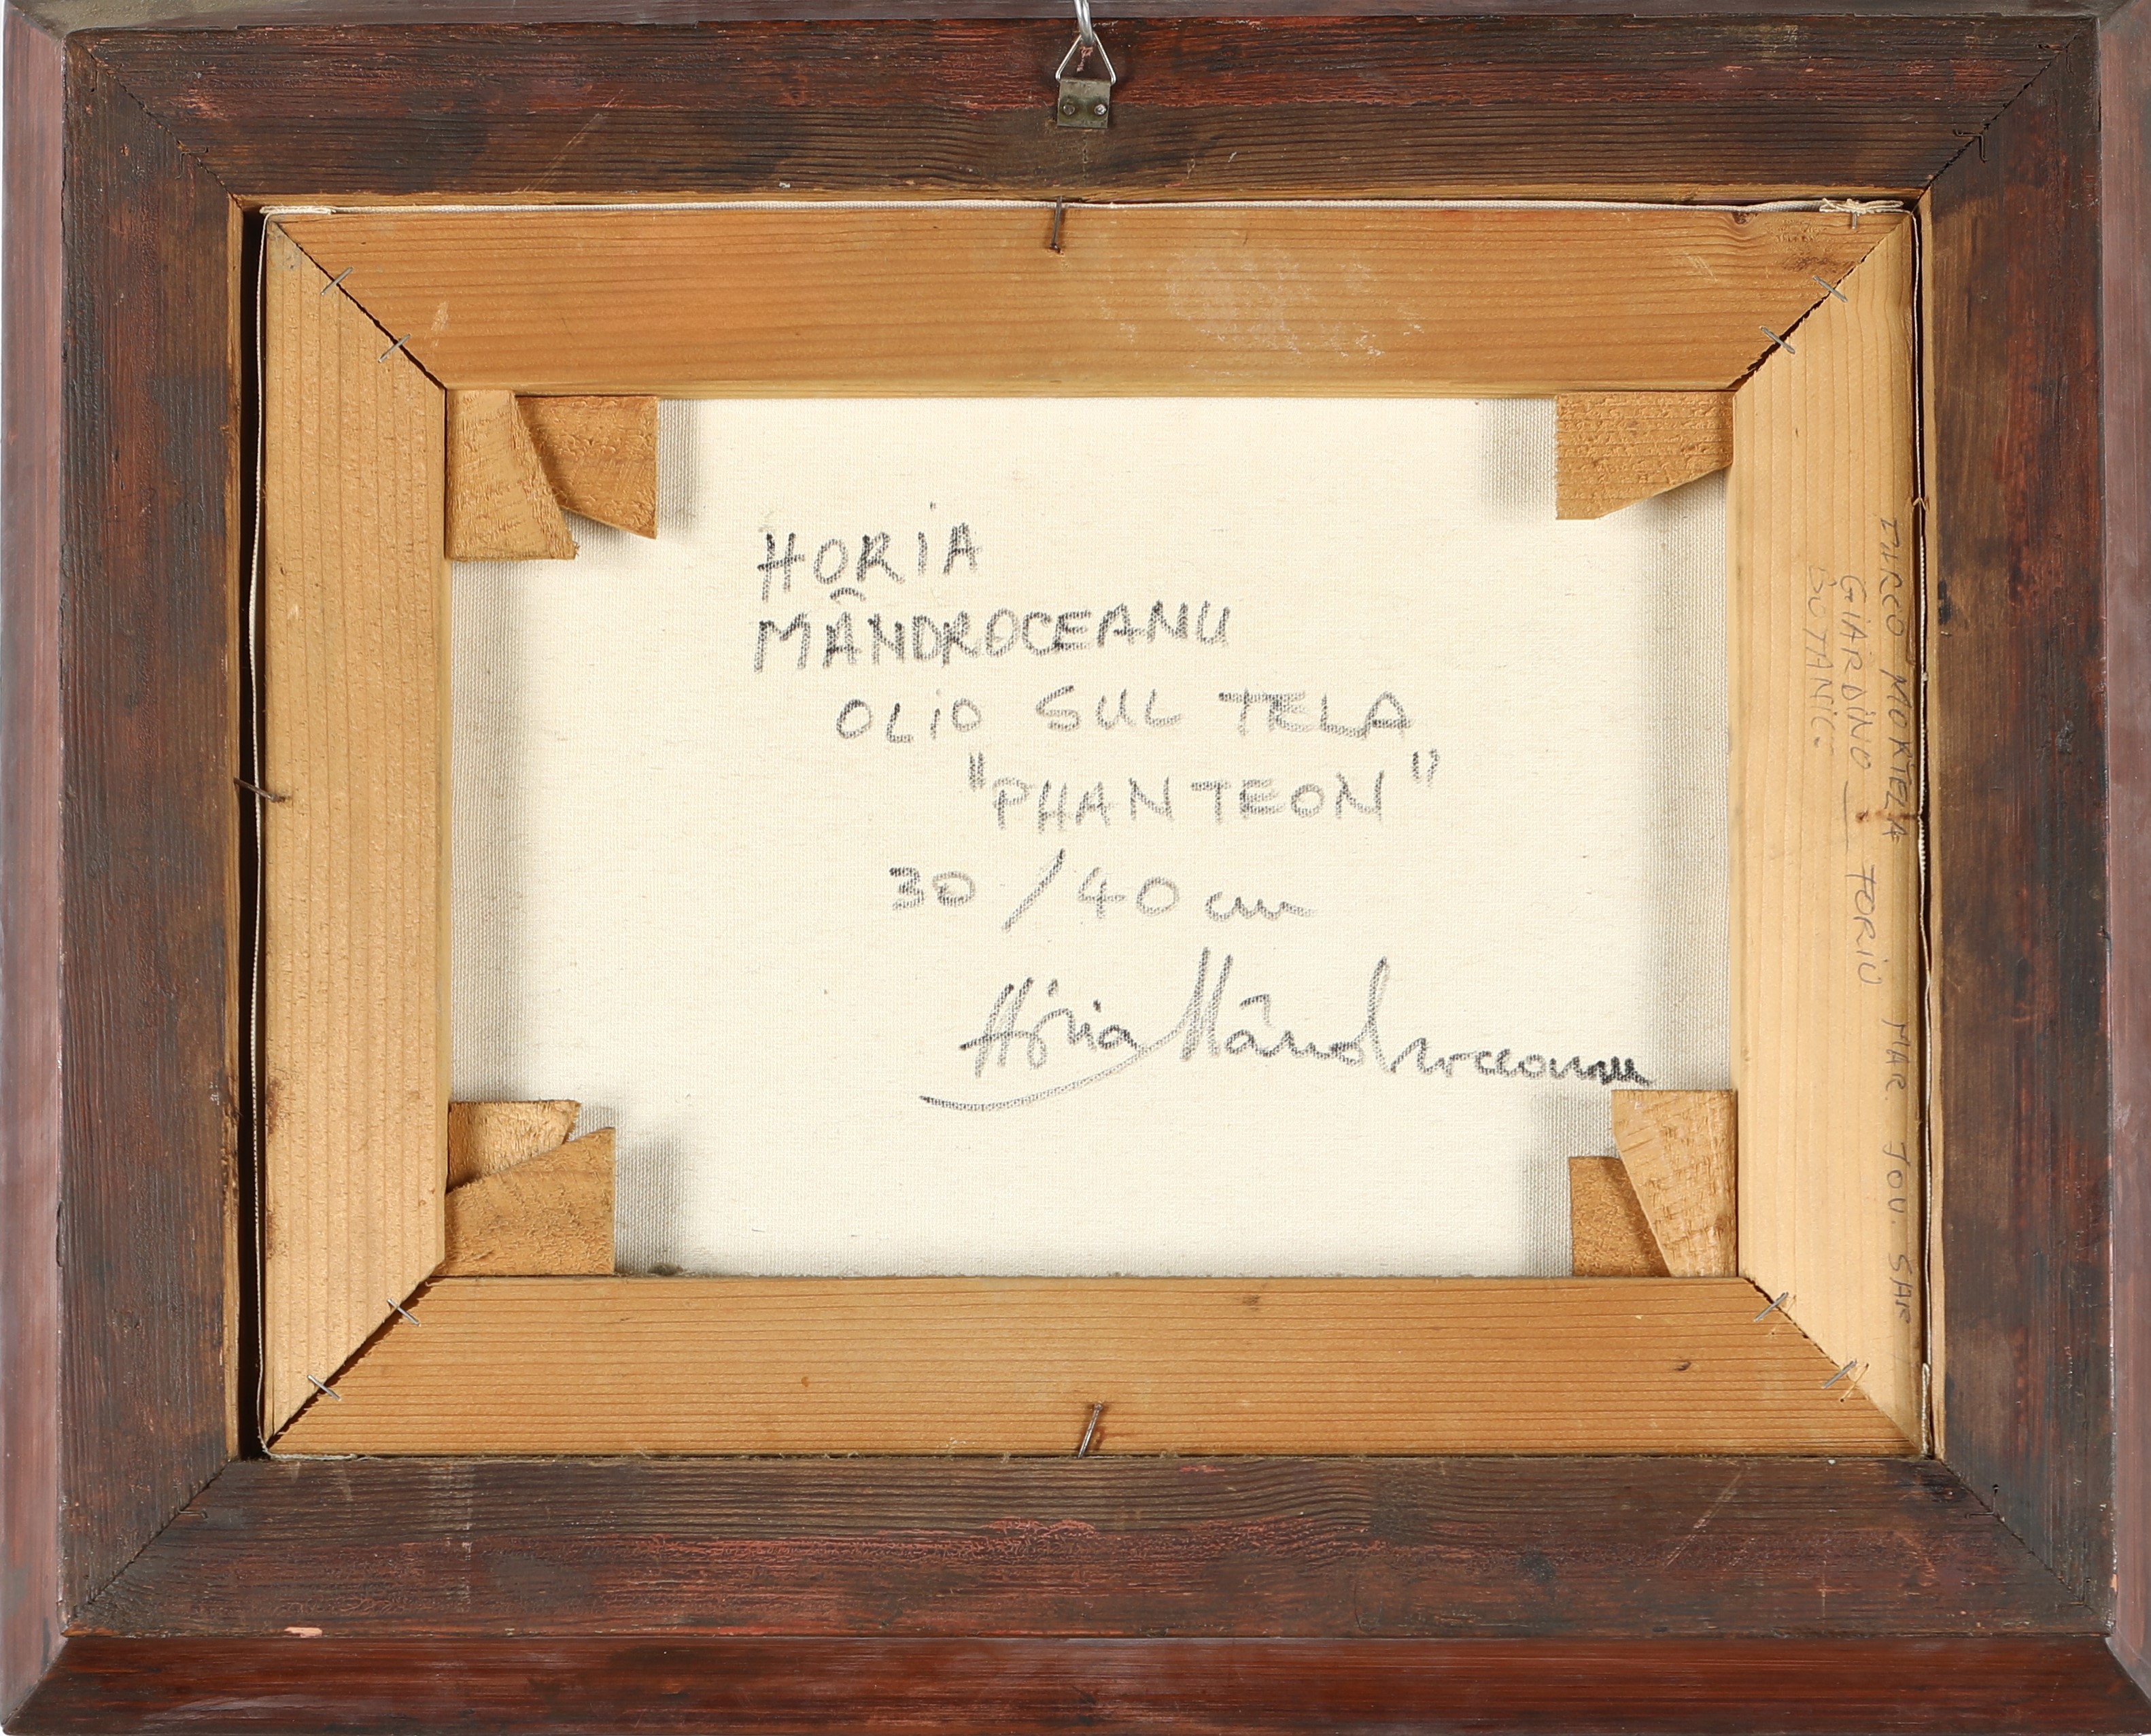 HORiA
MÂNDROCEANU
OLiO SUL TELA
"PHANTEON"
30/40 cm
Horia Mândroceanu
PARCO MORTELA MAR. JOU. SAR
GIARDiNO — FORIO
BOTANICO